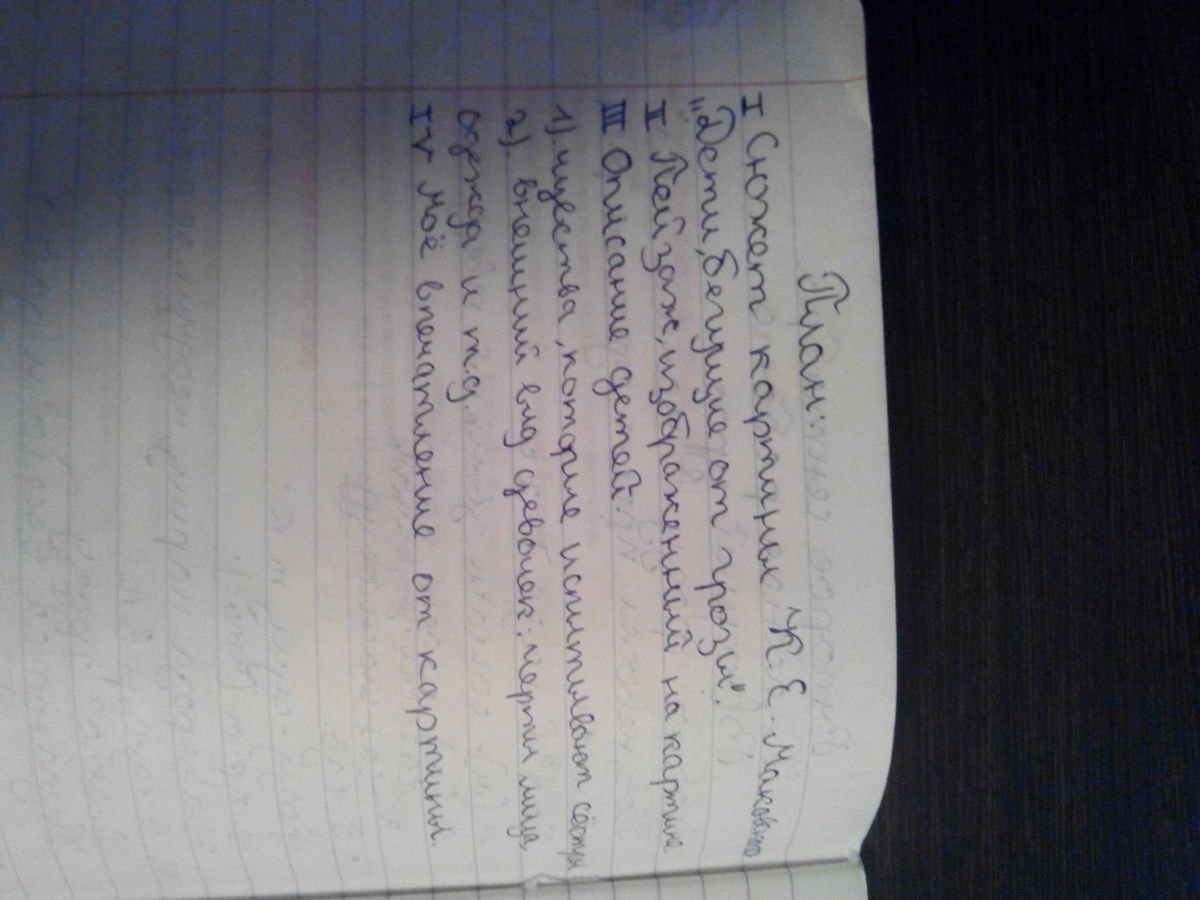 План:
I Сюжет картины К.Е. Маковского
"Дети, бегущие от грозы".
II Пейзаж, изображенный на картине
III Описание детей:
1). чувства, которые испытывают сёстры
2). внешний вид девочек: черты лица,
одежда и т.д.
IV Моё впечатление от картины.